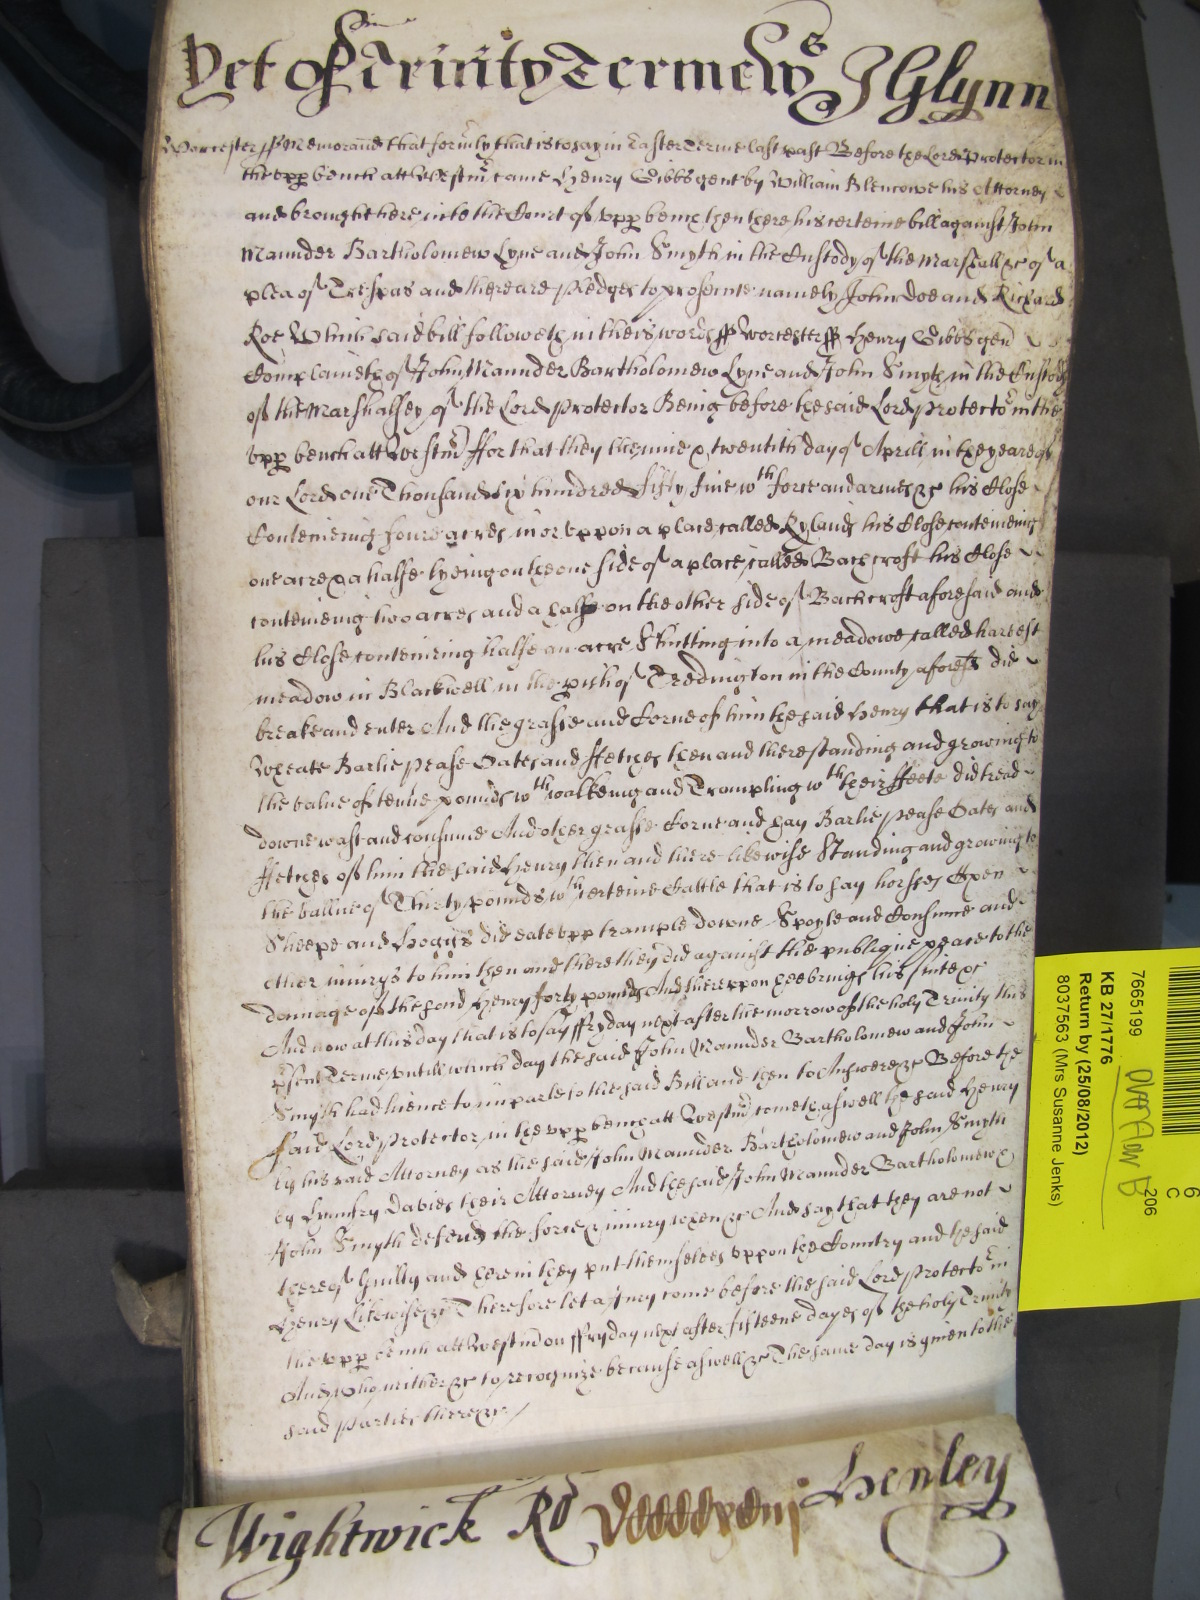 Yet of Trinity Terme Wits J Glynn
Worcester ss Memorand that formly that is to say in Easter Terme last past Before the Lord Protector in
the upp bench att Westm came Henry Gibbs gent by William Blencowe his Attorney
and brought here into the Court of upp bench then there his certeine bill against John
Maunder Bartholomew Lyne and John Smyth in the Custody of the Marshall &c of a
plea of Trespas and there are pledges to prosecute namely John Doe and Richard
Roe Which said bill followeth in theis words ss Worcester ss Henry Gibbs gen
Complaineth of John Maunder Bartholomew Lyne and John Smyth in the Custody
of the Marshalsey of the Lord Protector Being before the said Lord Protector in the
upp bench att Westm ffor that they the nine & twentith day of Aprill in the yeare of
our Lord one Thousand six hundred fifty five wth force and armes &c his Close
Conteineing foure acres in or uppon a place called Rylands his Close conteineing
one acre & a halfe lyeing on the one side of a place called Bachcroft his Close
conteineing two acres and a halfe on the other side of Bachcroft aforesaid and
his Close conteineing halfe an acre Shutting into a meadowe called harvest
meadow in Blackwell in the pish of Tredington in the County aforesd did
breake and enter And the grasse and Corne of him the said Henry that is to say
Wheate Barlie pease Oates and ffetches then and there standing and growing to
the value of tenne pounds wth walkeing and Trampling wth their ffeete did tread
downe wast and consume And other grasse Corne and hay Barlie pease Oates and
ffetches of him the said Henry then and there likewise Standing and growing to
the vallue of Thirty pounds wth certeine Cattle that is to say horsses Oxen
Sheepe and Hoggs did eate upp trample downe Spoyle and Consume and
other injurys to him then and there they did against the publique peace to the
damage of the said Henry forty pounds And thereuppon hee brings his suite &c
And now at this day that is to say ffryday next after the morrow of the holy Trinity this
psent Terme untill which day the said John Maunder Bartholomew and John
Smyth had licence to imparle to the said Bill and then to Answere &c Before the
said Lord Protector in the upp bench att Westm cometh aswell the said Henry
by his said Attorney as the said John Maunder Bartholomew and John Smyth
by Humfry Davies their Attorney And the said John Maunder Bartholomew &
John Smyth defend the force & injury when &c And say that they are not
thereof Guilty and herein they put themselves uppon the Country and the said
Henry Likewise &c Therefore let a Jury come before the said Lord Protector in
the upp bench att Westm on ffryday next after fifteene dayes of the holy Trinity
And who neither &c to recognize because aswell &c The same day is given to the
said parties there &c
Wightwick Ro Henley
7665199
KB 27/1776
Return by (25/08/2012)
8037563 (Mrs Susanne Jenks)
206
C
6